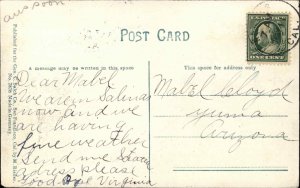 ans soon
POST CARD
A message may be written in this space
This space for address only
ONE CENT
CAL
Dear Mabel
we are in Salinas
now and we
are having
fine weather
Send me
adress please
good bye Virginia
Mabel Cloyd
Yuma
Arizona